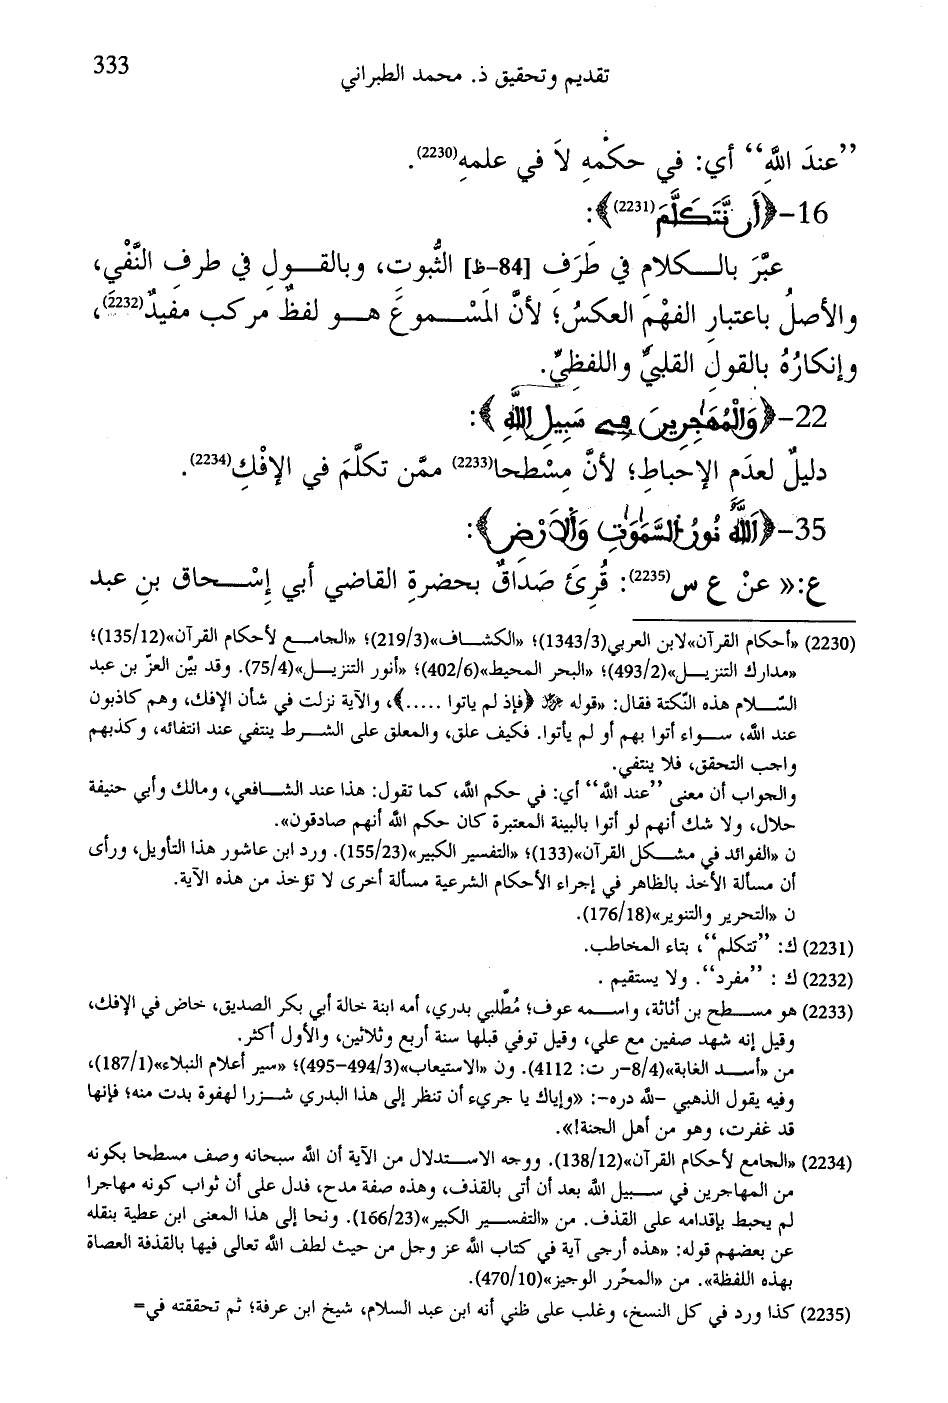 333
تقديم وتحقيق ذ. محمد الطبراني
”عندَ اللَّهِ“ أي: في حكْمِهِ لاَ في علمِهِ(2230).
16-﴿أَن نَّتَكَلَّمَ(2231)﴾:
عبَّرَ بالــكلامِ في طرَفِ [84-ظ] الثُّبوتِ، وبالقــولِ في طرفِ النَّفْي،
والأصلُ باعتبارِ الفهْمِ العكسُ؛ لأنَّ المَسْــموعَ هــو لفظٌ مركب مفيدٌ(2232)،
وإنكارُهُ بالقولِ القلبيِّ واللفظيِّ.
22-﴿وَالْمُهَٰجِرِينَ فِے سَبِيلِ اللَّهِ ﴾:
دليلٌ لعدَمِ الإحباطِ؛ لأنَّ مِسْطحا(2233) ممَّن تكلَّمَ في الإفْكِ(2234).
35-﴿اَللَّهُ نُورُ السَّمَٰوَٰتِ وَالَارْضِ﴾:
ع:« عنْ ع س(2235): قُرِئَ صَدَاقٌ بحضرةِ القاضي أبي إسْــحاق بنِ عبد
(2230) «أحكام القرآن»لابن العربي(1343/3)؛ «الكشــاف»(219/3)؛ «الجامــع لأحكام القرآن»(135/12)؛
«مدارك التنزيــل»(493/2)؛ «البحر المحيط»(402/6)؛ «أنور التنزيــل»(75/4). وقد بيَّن العزّ بن عبد
السّــلام هذه النّكتة فقال: «قوله ﷻ ﴿فإذ لم ياتوا .....﴾، والآية نزلت في شأن الإفك، وهم كاذبون
عند الله، ســواء أتوا بهم أو لم يأتوا. فكيف علق، والمعلق على الشــرط ينتفي عند انتفائه، وكذبهم
واجب التحقق، فلا ينتفي.
والجواب أن معنى ”عند الله“ أي: في حكم الله، كما تقول: هذا عند الشــافعي، ومالك وأبي حنيفة
حلال، ولا شك أنهم لو أتوا بالبينة المعتبرة كان حكم الله أنهم صادقون».
ن «الفوائد في مشــكل القرآن»(133)؛ «التفسير الكبير»(155/23). ورد ابن عاشور هذا التأويل، ورأى
أن مسألة الأخذ بالظاهر في إجراء الأحكام الشرعية مسألة أخرى لا تؤخذ من هذه الآية.
ن «التحرير والتنوير»(176/18).
(2231) ك: ”تتكلم“، بتاء المخاطب.
(2232) ك : ”مفرد“. ولا يستقيم .
(2233) هو مســطح بن أثاثة، واســمه عوف؛ مُطّلبي بدري، أمه ابنة خالة أبي بكر الصديق، خاض في الإفك،
وقيل إنه شهد صفين مع علي، وقيل توفي قبلها سنة أربع وثلاثين، والأول أكثر.
من «أســد الغابة»(8/4-ر ت: 4112). ون «الاستيعاب»(494/3-495)؛ «سير أعلام النبلاء»(187/1)،
وفيه يقول الذهبي -لله دره-: «وإياك يا جريء أن تنظر إلى هذا البدري شــزرا لهفوة بدت منه؛ فإنها
قد غفرت، وهو من أهل الجنة!».
(2234) «الجامع لأحكام القرآن»(138/12). ووجه الاســتدلال من الآية أن الله سبحانه وصف مسطحا بكونه
من المهاجرين في ســبيل الله بعد أن أتى بالقذف، وهذه صفة مدح، فدل على أن ثواب كونه مهاجرا
لم يحبط بإقدامه على القذف. من «التفســير الكبير»(166/23). ونحا إلى هذا المعنى ابن عطية بنقله
عن بعضهم قوله: «هذه أرجى آية في كتاب الله عز وجل من حيث لطف الله تعالى فيها بالقذفة العصاة
بهذه اللفظة». من «المحرّر الوجيز»(470/10).
(2235) كذا ورد في كل النسخ، وغلب على ظني أنه ابن عبد السلام، شيخ ابن عرفة؛ ثم تحققته في=